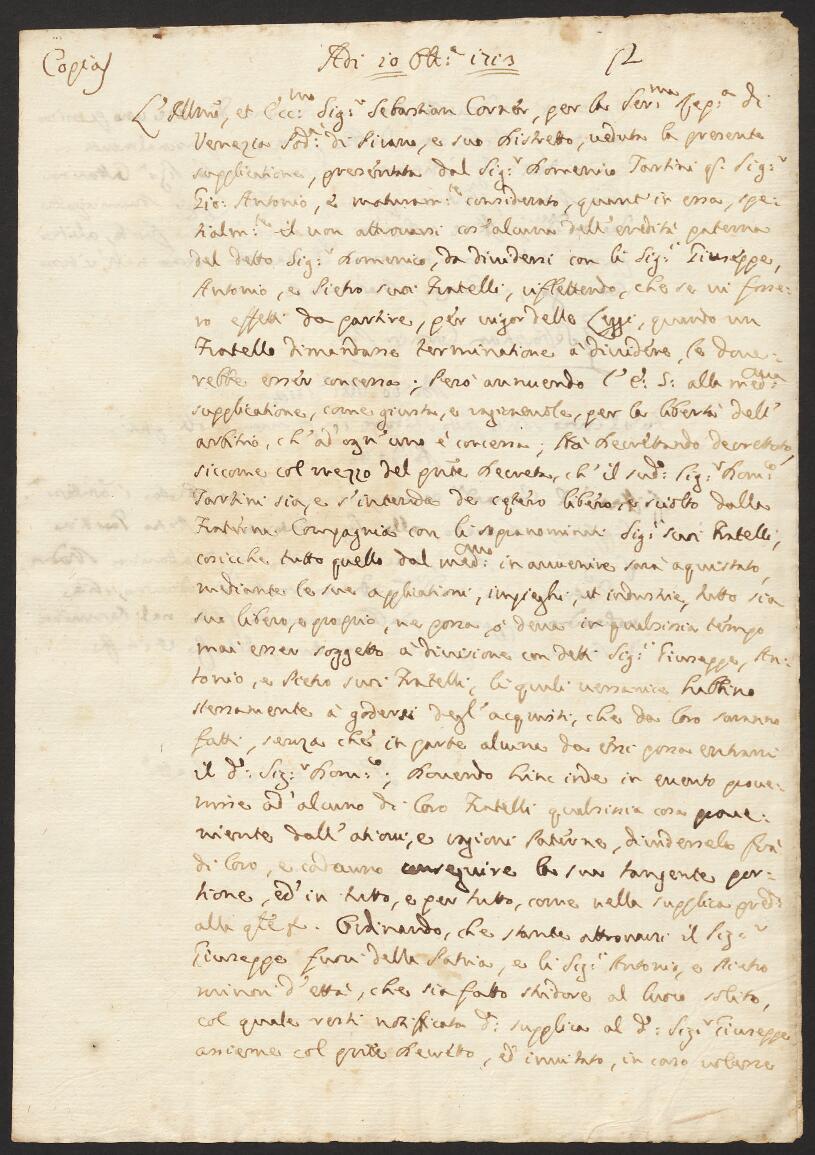 Copia
Adi 10 Ottb.e 1713
52
L'Illmo, et Ecc:mo Sig:r Sebastian Cornèr, per la Ser:ma Rep:a di
Venezia Pod:à di Pirano, e suo Distretto, veduta la presente
supplicatione, presentata dal Sig:r Domenico Tartini q: Sig:r
Gio: Antonio, e maturam:te considerato, quant'in essa, spe-
tialm:te il non attrovarsi cos'alcuna dell'eredità paterna
del detto Sig:r Domenico, da dividersi con li Sig:ri Giuseppe,
Antonio, e Pietro suoi Fratelli, riflettendo, che se vi fosse-
ro effetti da partire, per vigor delle Leggi, quando un
Fratello dimandasse terminatione à dividere, le dove-
rebbe esser concessa; Però annuendo l'E: S: alla med:ma
supplicatione, come giusta, e ragionevole, per la libertà dell'
arbitrio, ch'ad'ogn'uno è concessa; Hà decretando decretato,
siccome col mezzo del pnte Decreta, ch'il sud:o Sig:r Dom:co
Tartini sia, e s'intenda de cętero libero, e sciolto dalla
Fraterna Compagnia con li sopranominati Sig:ri suoi Fratelli,
cosicche tutto quello dal med:mo in avvenire sarà aquistato,
mediante le sue applicationi, impieghi, et industrie, tutto sia
suo libero, e proprio, ne possa, ò deva in qualsisia tempo
mai esser soggetto à divisione con detti Sig:ri Giuseppe, An-
tonio, e Pietro suoi Fratelli, li quali versavice habbino
stessamente à godersi degl'acquisti, che da loro saranno
fatti, senza che in parte alcuna da essi possa entrarvi
il d:o Sig:r Dom:co; Dovendo hinc inde in evento prove-
nisse ad'alcuno di loro Fratelli qualsisia cosa prove-
niente dall'ationi, e ragioni Paterne, dividersela frà
di loro, e cadauno conseguire la sua tangente por-
tione, ed'in tutto, e per tutto, come nella supplica pred:a
alla qle &. Ordinando, che stante attrovarsi il Sig:r
Giuseppe fuori della Patria, e li Sig:ri Antonio, e Pietro
minori d'ettà, che sia fatto stridore al luoco solito,
col quale resti notificata d:a supplica al d:o Sig:r Giuseppe
assieme col pnte Decretto, ed'invitato, in caso volesse